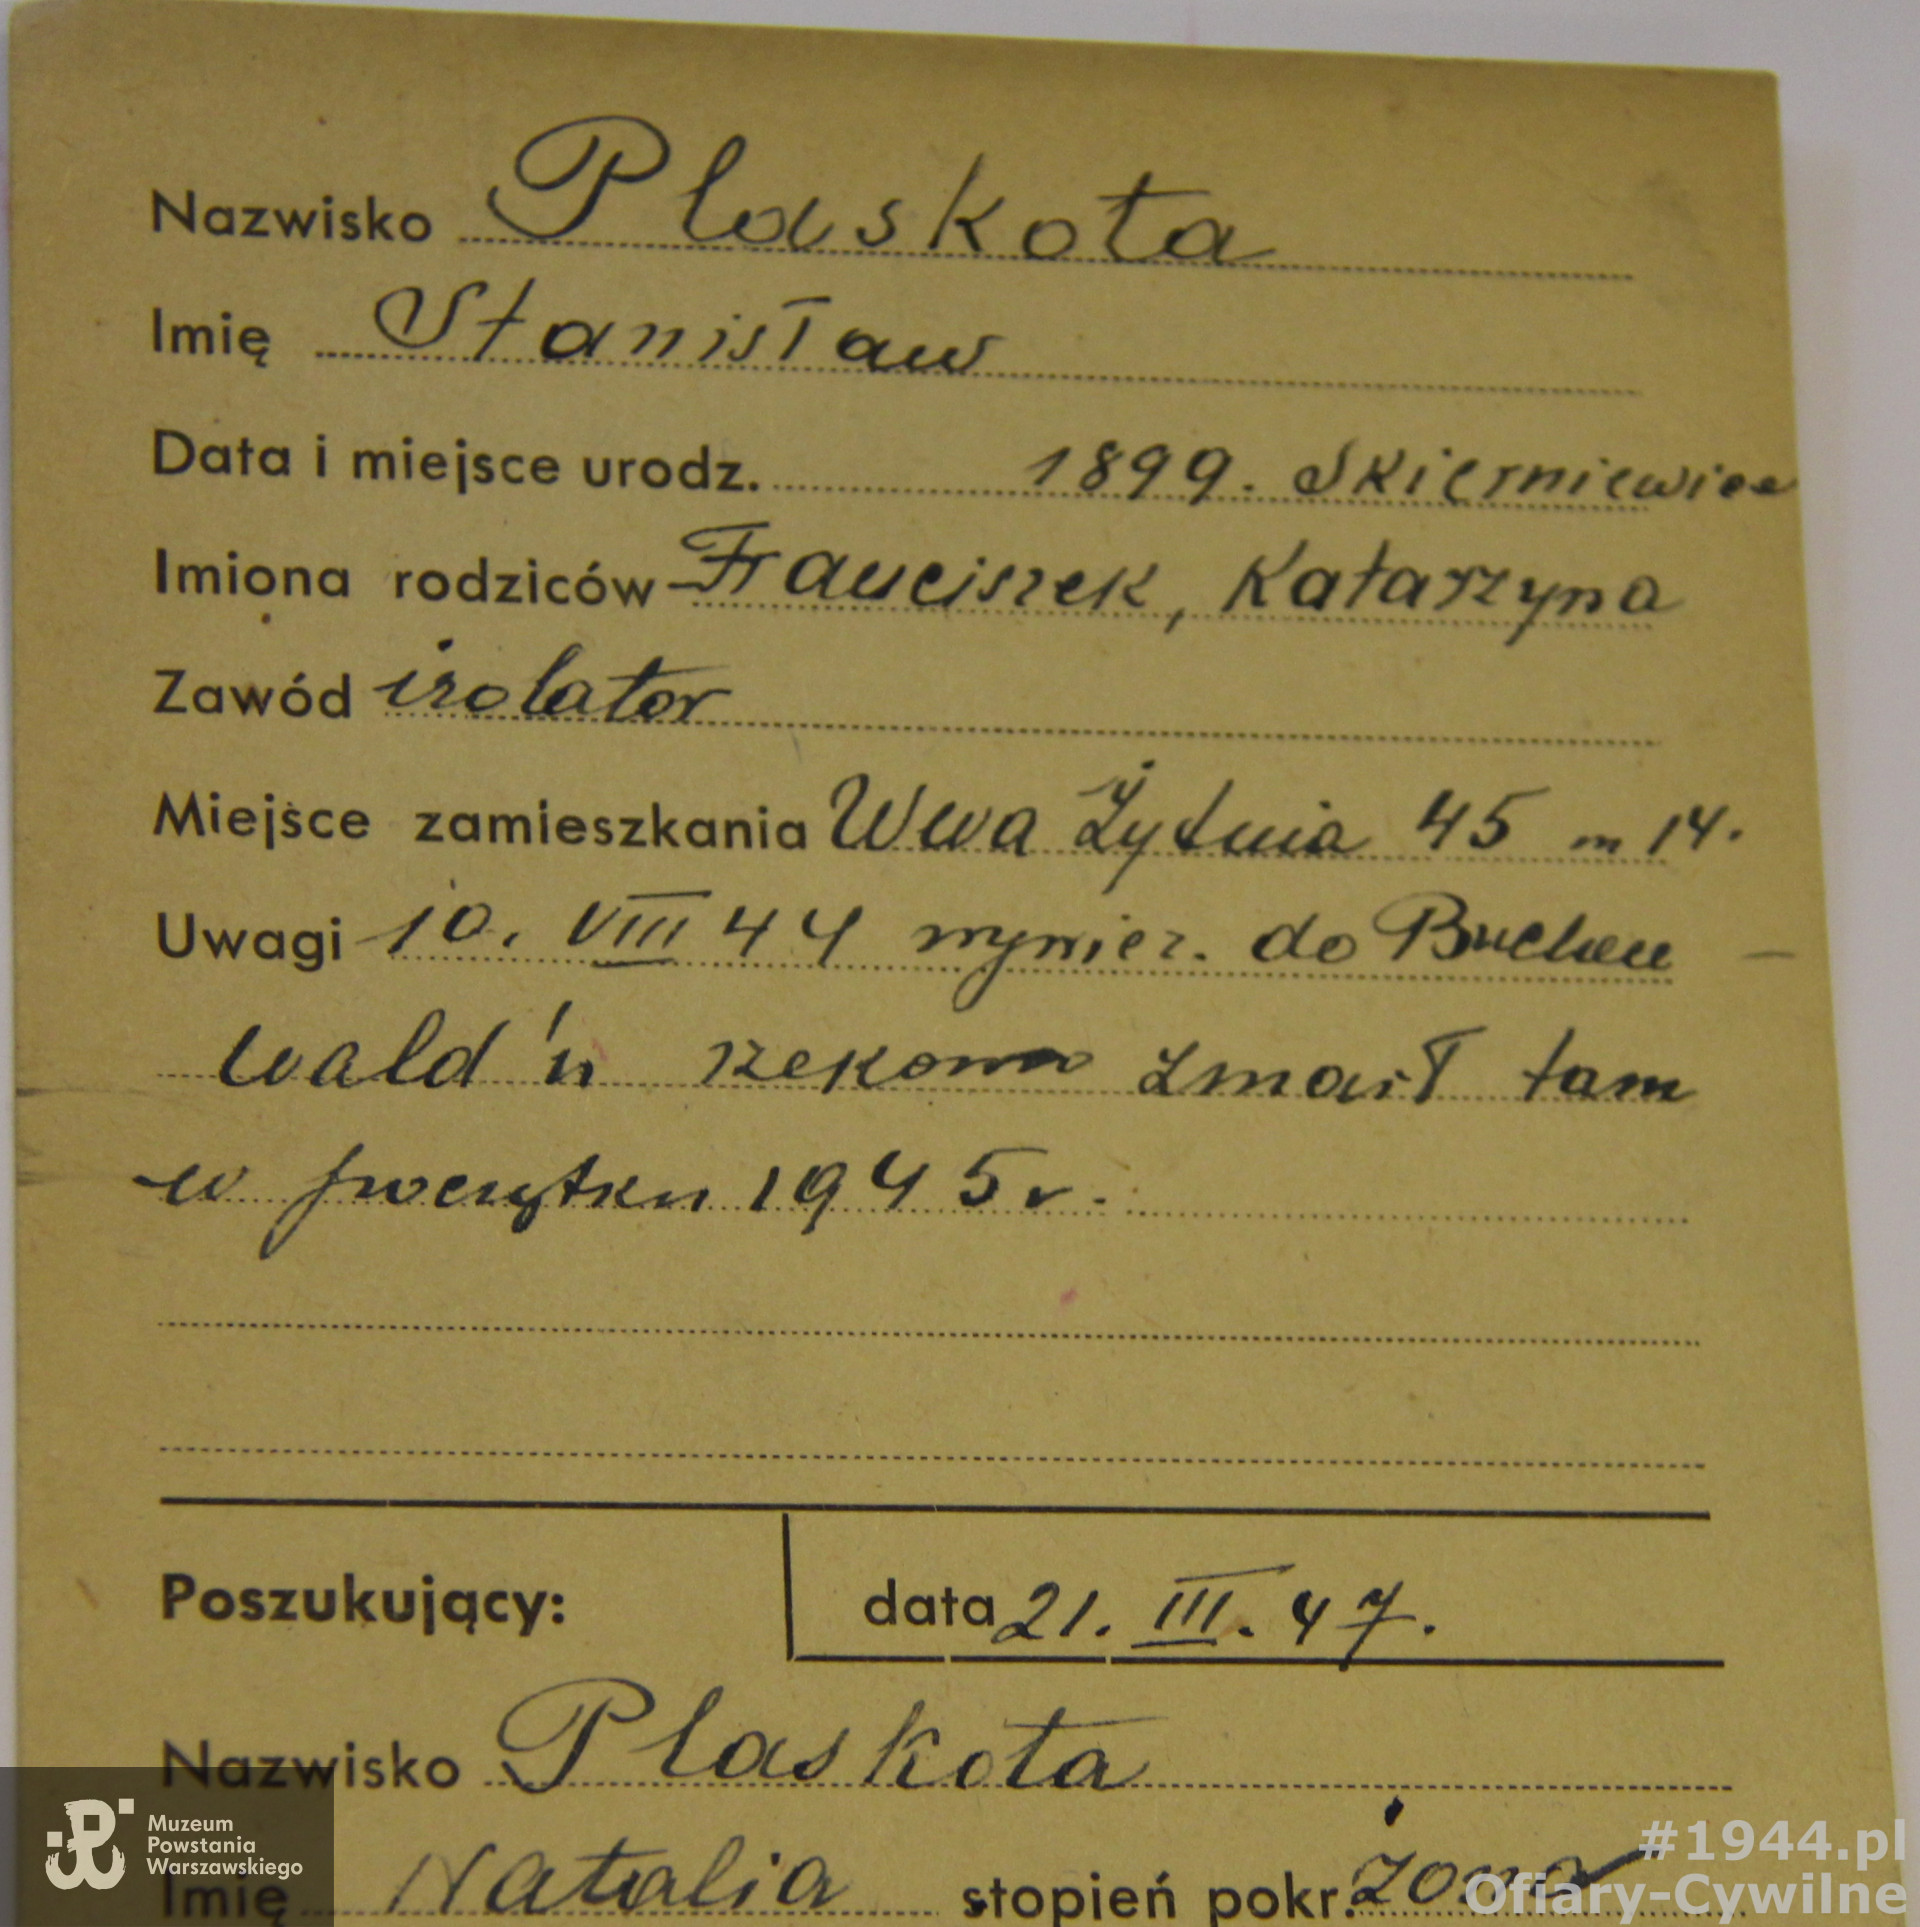 Nazwisko Plaskota
Imię Stanisław
Data i miejsce urodz. 1899. Skierniewice
Imiona rodziców Franciszek, Katarzyna
Zawód izolator
Miejsce zamieszkania Wwa Żytnia 45 m 14.
Uwagi 10. VIII 44 wywiez. do Buchen-
wald'u rzekomo zmarł tam
w początku 1945 r.
Poszukujący: data 21. III. 47.
Nazwisko Plaskota
Imię Natalia stopień pokr. żona
Muzeum
Powstania
Warszawskiego
#1944.pl
Ofiary-Cywilne